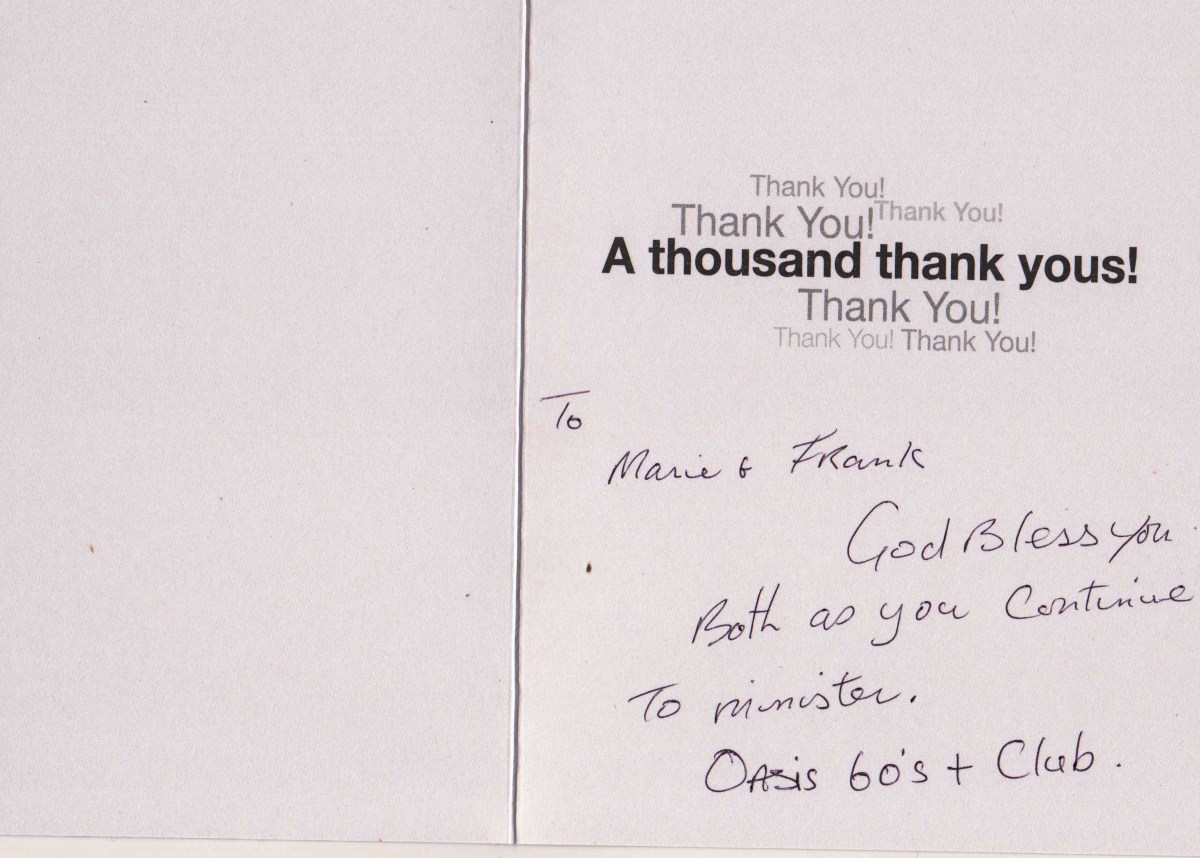 Thank You!
Thank You! Thank You!
A thousand thank yous!
Thank You!
Thank You! Thank You!
To
Marie & Frank
God Bless you
Both as you Continue
To minister.
Oasis 60's + Club.